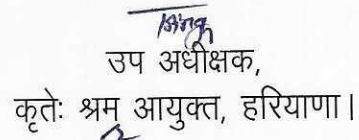 उप अधीक्षक,
कृतेः श्रम आयुक्त, हरियाणा।